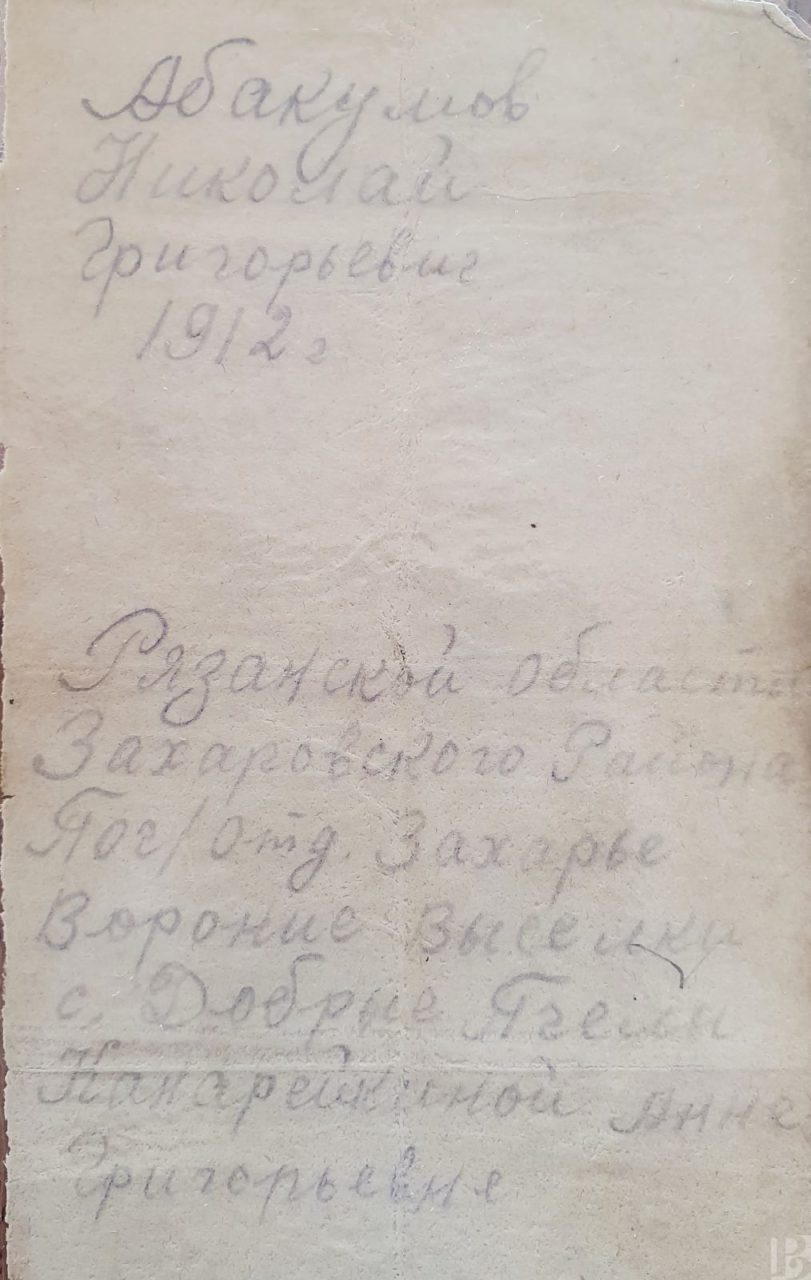 Абакумов
Николай
Григорьевич
1912 г
Рязанской области
Захаровского Района
Поч/отд. Захарье
Вороние Выселки
с. Добрые Пчелы
Канарейкиной Анне
Григорьевне